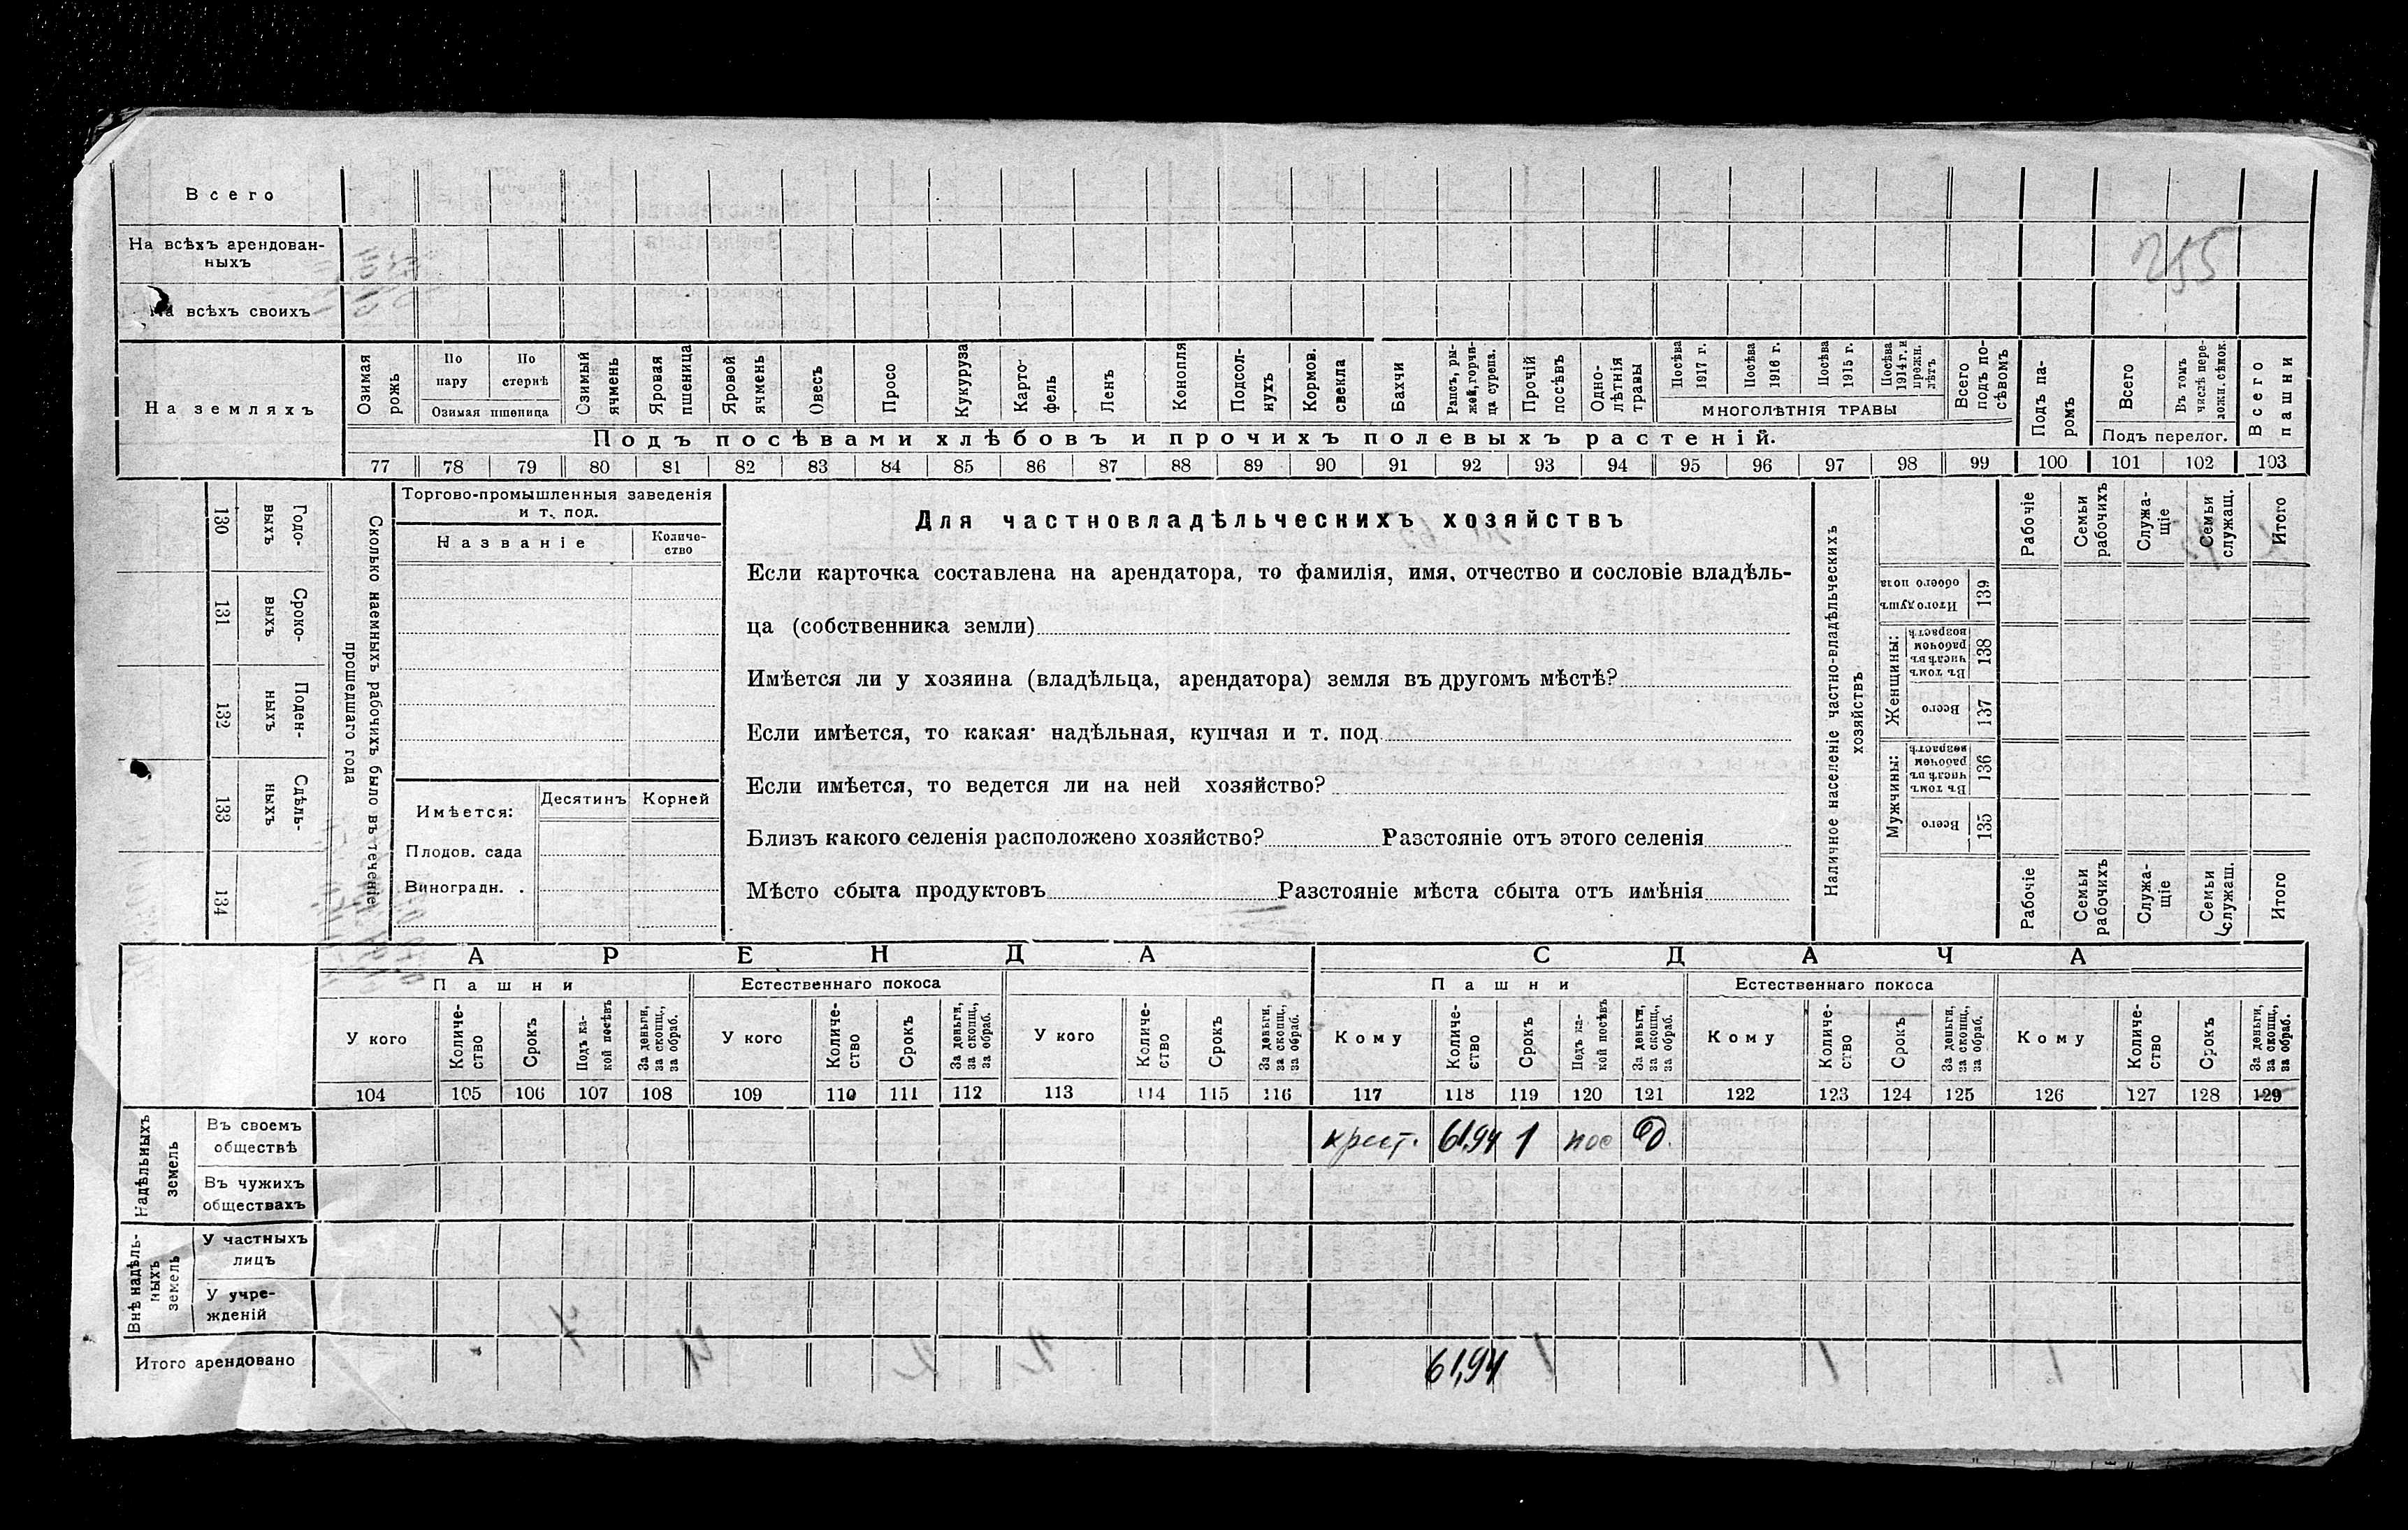 Всего
На всѣхъ арендован-
ныхъ
255
На всѣхъ своихъ
На земляхъ
Озимая рожь
По пару
По стернѣ
Озимая пшеница
Озимый ячмень
Яровая пшеница
Яровой ячмень
Овесъ
Просо
Кукуруза
Карто-
фель
Ленъ
Конопля
Подсол-
нухъ
Кормов. свекла
Бахчи
Рапсъ, ры-
жей, горчи-
ца сурепа.
Прочій посѣвъ
Одно-
лѣтнія
травы
Посѣва 1917 г.
Посѣва 1916 г.
Посѣва 1915 г.
Посѣва 1914 г. и прежн. лѣтъ
МНОГОЛѢТНІЯ ТРАВЫ
Всего подъ по-
сѣвомъ
Подъ па-
ромъ
Всего
Въ томъ числѣ пере-
ложн. сѣнок.
Подъ перелог.
Всего пашни
Подъ посѣвами хлѣбовъ и прочихъ полевыхъ растеній.
77 78 79 80 81 82 83 84 85 86 87 88 89 90 91 92 93 94 95 96 97 98 99 100 101 102 103
130 Годо-
выхъ
131 Сроко-
выхъ
132 Поден-
ныхъ
133 Сдѣль-
ныхъ
134
Сколько наемныхъ рабочихъ было въ теченіе
прошедшаго года
Торгово-промышленныя заведенія
и т. под.
Названіе
Количе-
ство
Имѣется:
Десятинъ
Корней
Плодов. сада
Виноградн. .
Для частновладѣльческихъ хозяйствъ
Если карточка составлена на арендатора, то фамилія, имя, отчество и сословіе владѣль-
ца (собственника земли)
Имѣется ли у хозяина (владѣльца, арендатора) земля въ другомъ мѣстѣ?
Если имѣется, то какая· надѣльная, купчая и т. под
Если имѣется, то ведется ли на ней хозяйство?
Близъ какого селенія расположено хозяйство? Разстояніе отъ этого селенія
Мѣсто сбыта продуктовъ Разстояніе мѣста сбыта отъ имѣнія
Наличное населеніе частно-владѣльческихъ
хозяйствъ
Рабочіе
Семьи рабочихъ
Служа-
щіе
Семьи служащ.
Итого
Итого душъ обоего пола 139
Женщины:
Въ томъ числѣ въ рабочем возрастѣ 138
Всего 137
Мужчины:
Въ томъ числѣ въ рабочем возрастѣ 136
Всего 135
Рабочіе
Семьи рабочихъ
Служа-
щіе
Семьи служащ.
Итого
АРЕНДА
СДАЧА
Пашни
Естественнаго покоса
Пашни
Естественнаго покоса
У кого
Количе-
ство
Срокъ
Подъ ка-
кой посѣвъ
За деньги, за скопщ., за обраб.
У кого
Количе-
ство
Срокъ
За деньги, за скопщ., за обраб.
У кого
Количе-
ство
Срокъ
За деньги, за скопщ., за обраб.
Кому
Количе-
ство
Срокъ
Подъ ка-
кой посѣвъ
За деньги, за скопщ., за обраб.
Кому
Количе-
ство
Срокъ
За деньги, за скопщ., за обраб.
Кому
Количе-
ство
Срокъ
За деньги, за скопщ., за обраб.
104 105 106 107 108 109 110 111 112 113 114 115 116 117 118 119 120 121 122 123 124 125 126 127 128 129
Надѣльныхъ земель
Въ своемъ
обществѣ
крест. 61,94 1 пос Д.
Въ чужихъ
обществахъ
Внѣ надѣль-
ныхъ
земель
У частныхъ
лицъ
У учре-
жденій
Итого арендовано
61,94